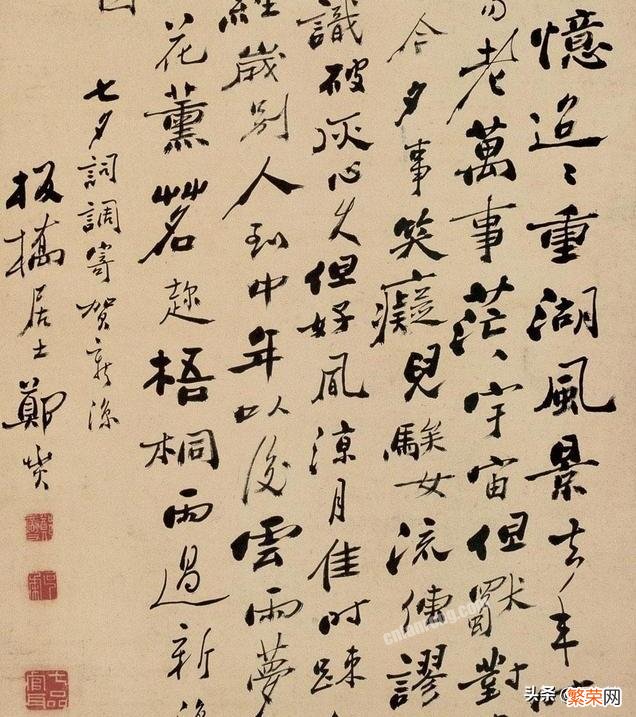 憶迢〻重湖風景去年
老萬事茫〻宇宙但獨對
今夕事笑癡兒騃女流傳謬
識破灰心久但好風涼月佳時疎
歲別人到中年以後雲雨夢
花薰茗趁梧桐雨過新
七夕詞調寄賀新涼
板橋居士鄭燮
七品官耳
头条
繁荣网